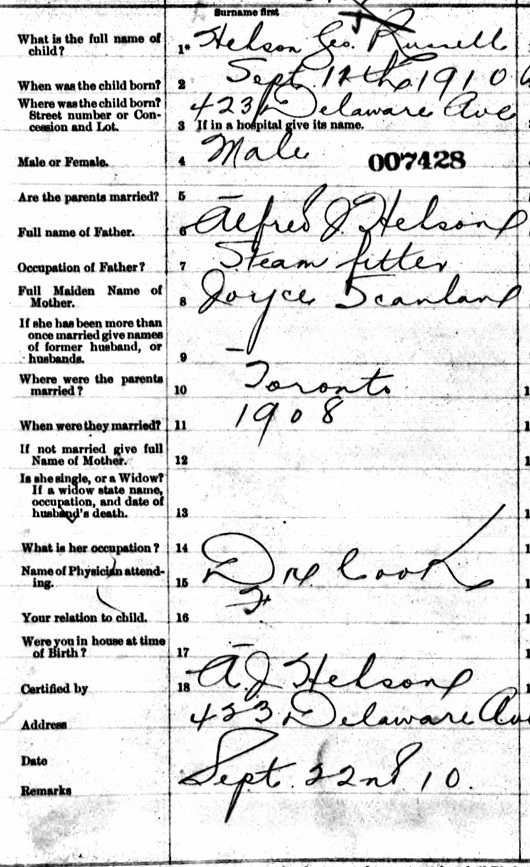 Surname first
What is the full name of child? 1* Helson Geo. Russell
When was the child born? 2 Sept. 12th 1910
Where was the child born? Street number or Concession and Lot. 423 Delaware Ave
3 If in a hospital give its name.
Male or Female. 4 Male 007428
Are the parents married? 5 —
Full name of Father. 6 Alfred J. Helson
Occupation of Father? 7 Steam fitter
Full Maiden Name of Mother. 8 Joyce Scanland
If she has been more than once married give names of former husband, or husbands. 9 —
Where were the parents married? 10 Toronto
When were they married? 11 1908
If not married give full Name of Mother. 12
Is she single, or a Widow? If a widow state name, occupation, and date of husband's death. 13
What is her occupation? 14
Name of Physician attending. 15 Dr Cook
Your relation to child. 16 F
Were you in house at time of Birth? 17 —
Certified by 18 A J Helson
Address 423 Delaware Av
Date Sept. 22nd 10.
Remarks